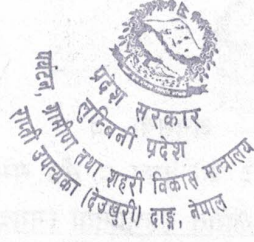 प्रदेश सरकार
लुम्बिनी प्रदेश
पर्यटन, ग्रामीण तथा शहरी विकास मन्त्रालय
राप्ती उपत्यका (देउखुरी) दाङ, नेपाल